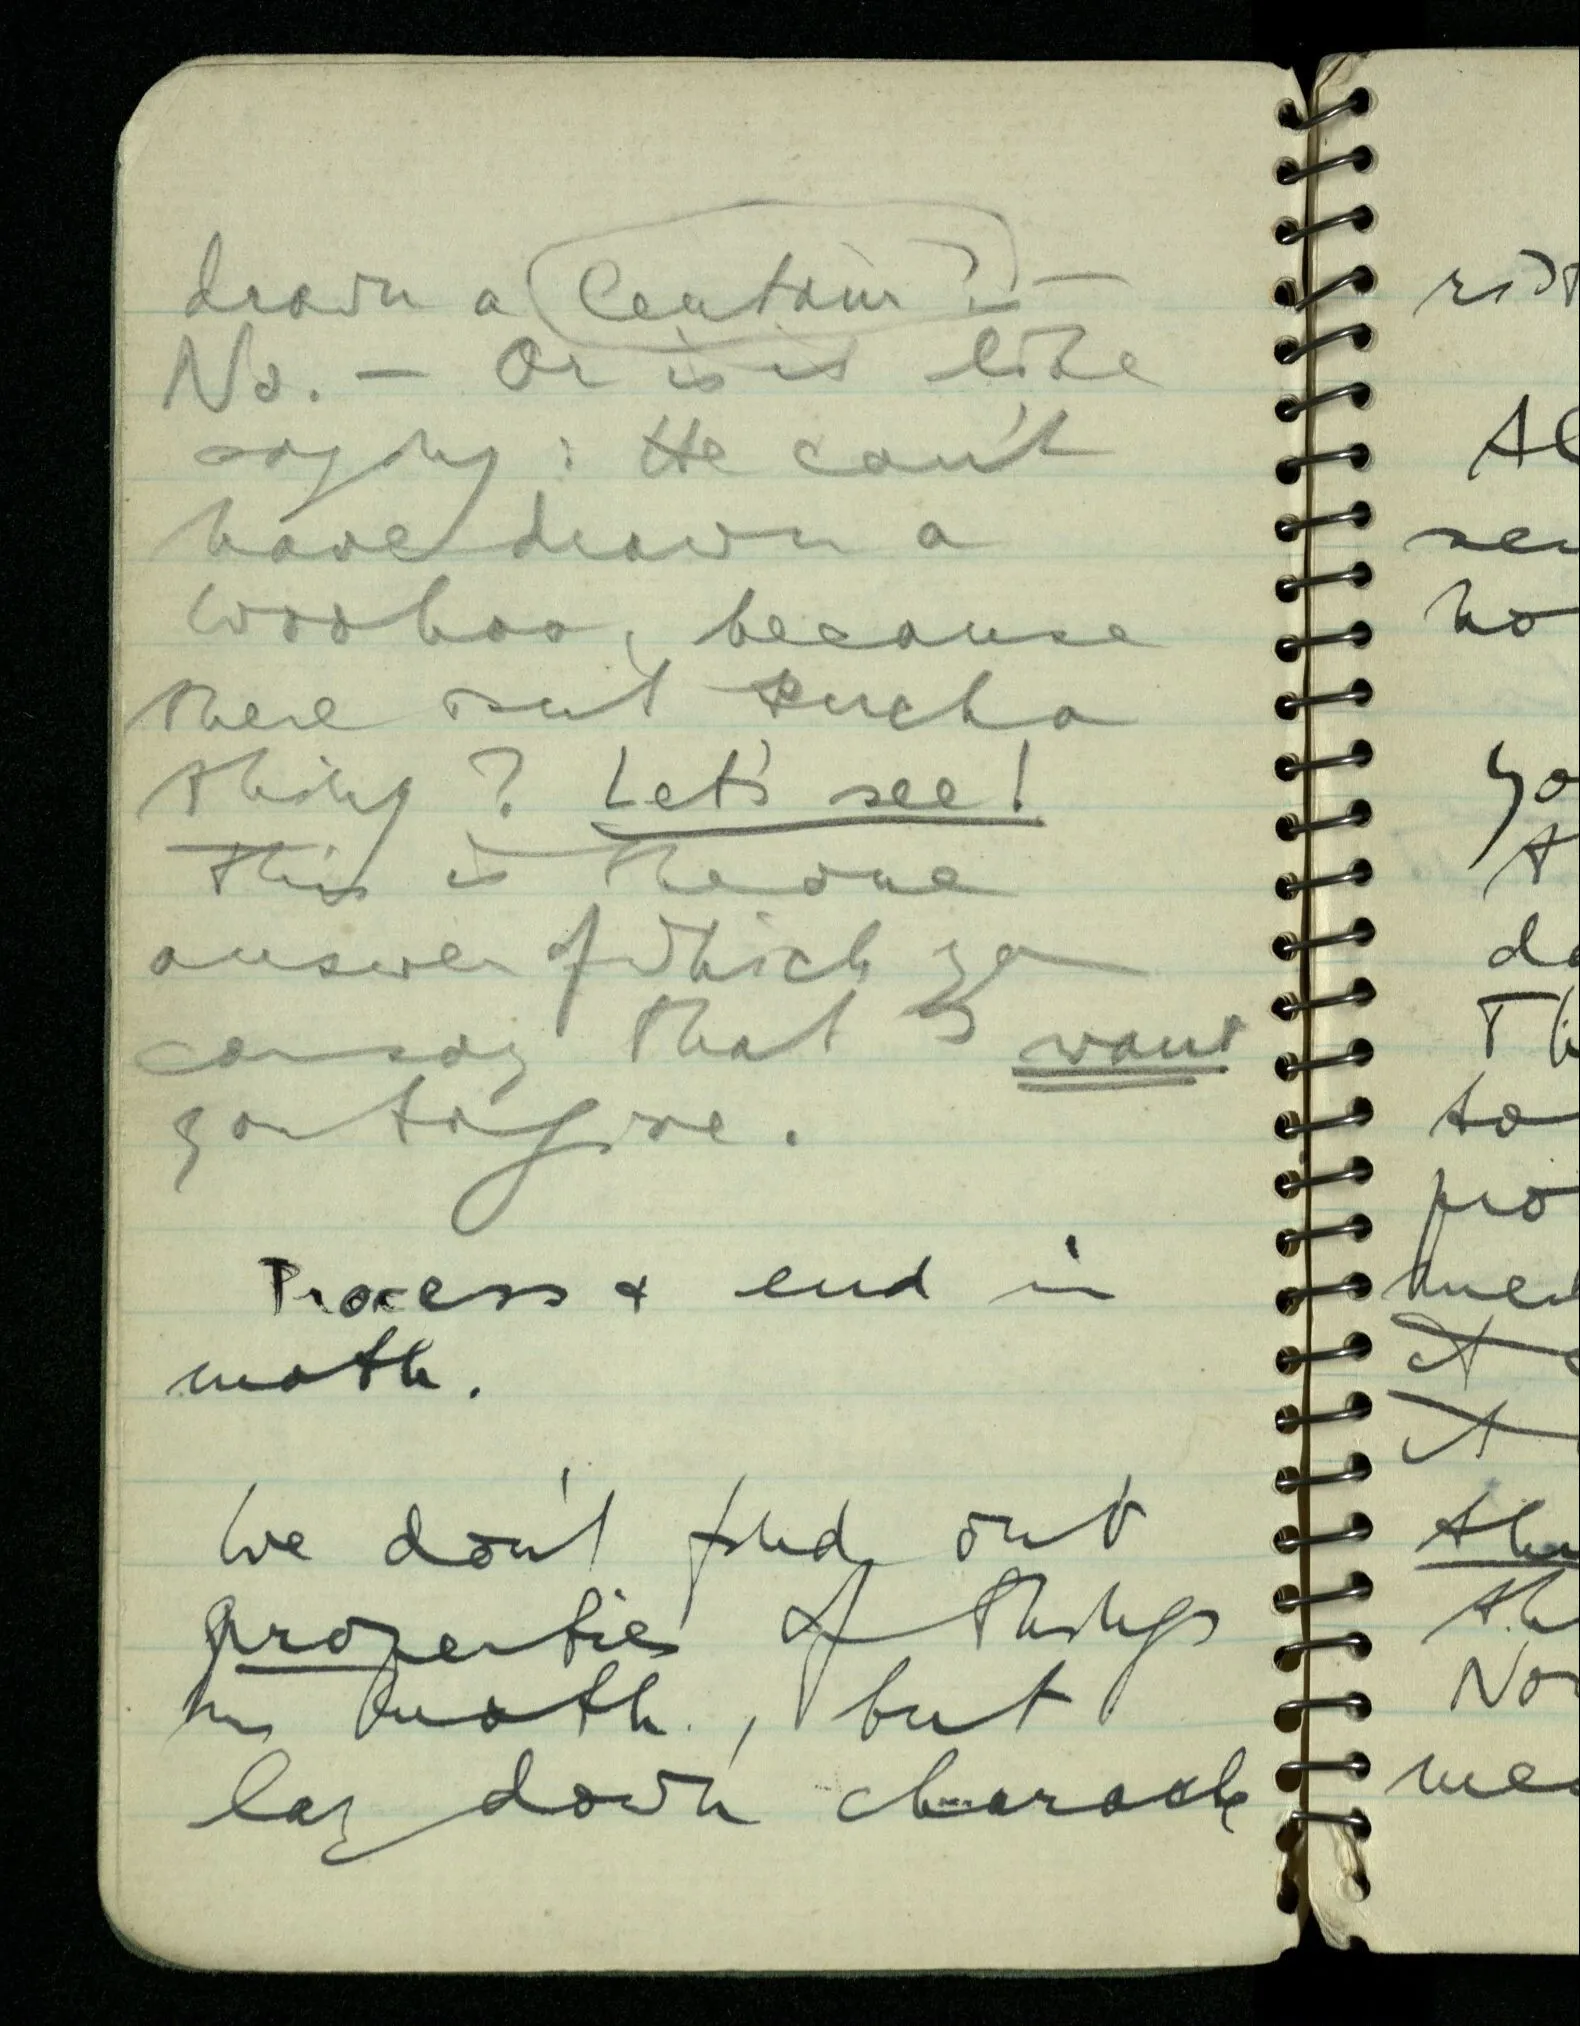 drawn a Centaur? —
No. — Or is it like
saying: He can't
have drawn a
wooboo, because
there isn't such a
thing? Let's see!
This is the one
answer of which you
can say that I want
you to give.
Process & end in
math.
We don't find out
properties of things
in math., but
lay down characte